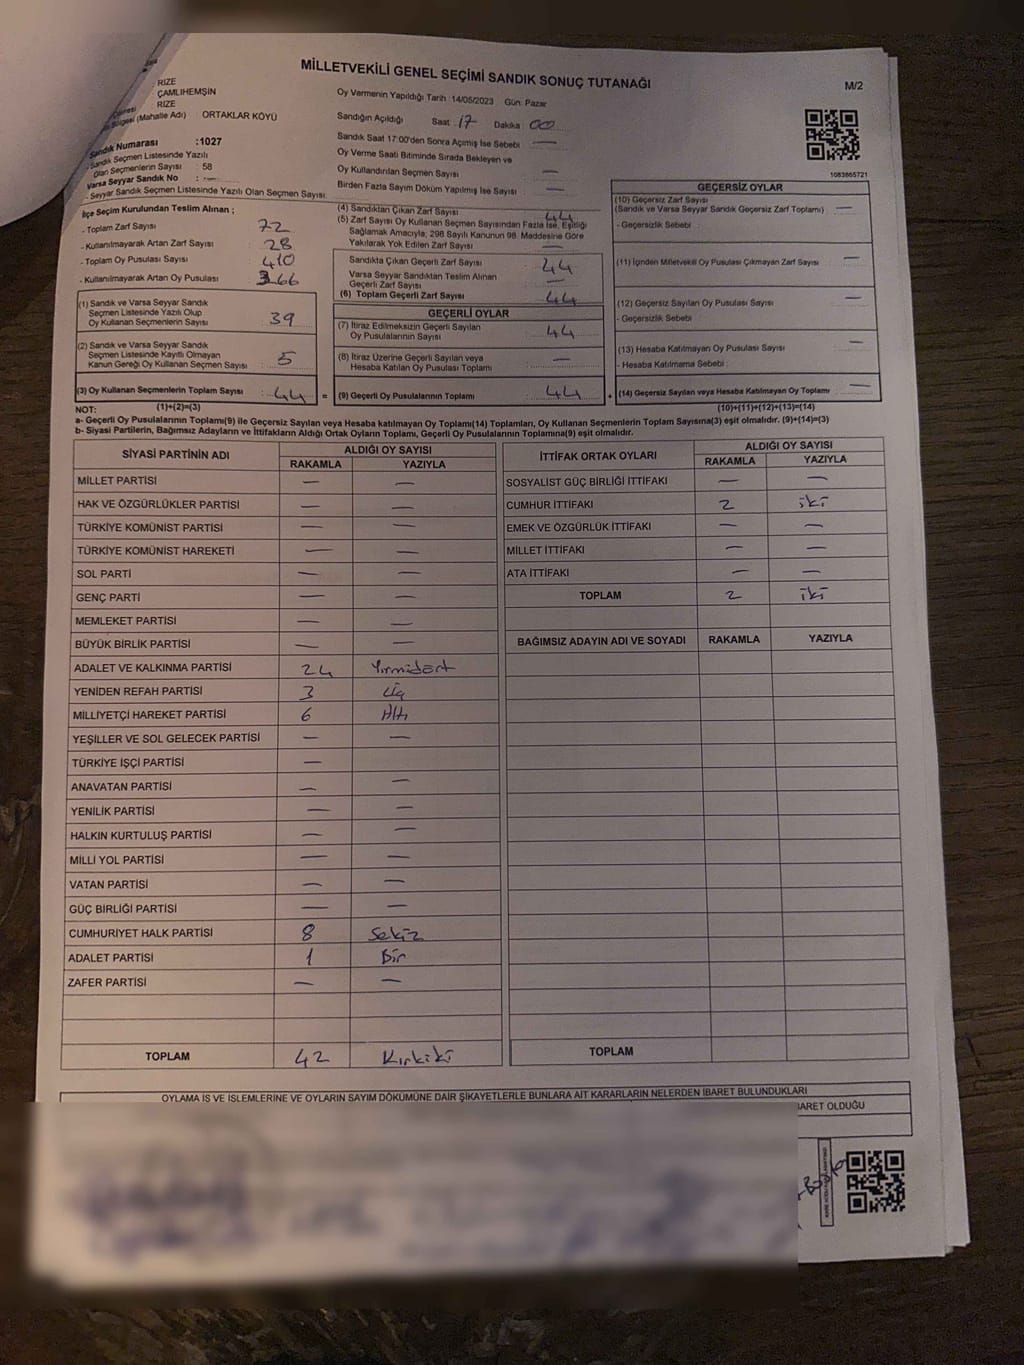 MİLLETVEKİLİ GENEL SEÇİMİ SANDIK SONUÇ TUTANAĞI
M/2
RİZE
ÇAMLIHEMŞİN
RİZE
(Mahalle Adı) ORTAKLAR KÖYÜ
Sandık Numarası :1027
Sandık Seçmen Listesinde Yazılı
Olan Seçmenlerin Sayısı : 58
Varsa Seyyar Sandık No : —
- Seyyar Sandık Seçmen Listesinde Yazılı Olan Seçmen Sayısı:
Oy Vermenin Yapıldığı Tarih :14/05/2023 Gün: Pazar
Sandığın Açıldığı Saat :17 Dakika : 00
Sandık Saat 17:00'den Sonra Açılmış İse Sebebi : —
Oy Verme Saati Bitiminde Sırada Bekleyen ve
Oy Kullandırılan Seçmen Sayısı : —
Birden Fazla Sayım Döküm Yapılmış İse Sayısı : —
1083865721
İlçe Seçim Kurulundan Teslim Alınan ;
- Toplam Zarf Sayısı : 72
- Kullanılmayarak Artan Zarf Sayısı : 28
- Toplam Oy Pusulası Sayısı : 410
- Kullanılmayarak Artan Oy Pusulası : 366
(1) Sandık ve Varsa Seyyar Sandık
Seçmen Listesinde Yazılı Olup
Oy Kullanan Seçmenlerin Sayısı : 39
(2) Sandık ve Varsa Seyyar Sandık
Seçmen Listesinde Kayıtlı Olmayan
Kanun Gereği Oy Kullanan Seçmen Sayısı : 5
(3) Oy Kullanan Seçmenlerin Toplam Sayısı : 44 =
(4) Sandıktan Çıkan Zarf Sayısı : 44
(5) Zarf Sayısı Oy Kullanan Seçmen Sayısından Fazla İse, Eşitliği
Sağlamak Amacıyla, 298 Sayılı Kanunun 98. Maddesine Göre
Yakılarak Yok Edilen Zarf Sayısı : —
Sandıkta Çıkan Geçerli Zarf Sayısı : 44
Varsa Seyyar Sandıktan Teslim Alınan
Geçerli Zarf Sayısı : —
(6) Toplam Geçerli Zarf Sayısı : 44
GEÇERLİ OYLAR
(7) İtiraz Edilmeksizin Geçerli Sayılan
Oy Pusulalarının Sayısı : 44
(8) İtiraz Üzerine Geçerli Sayılan veya
Hesaba Katılan Oy Pusulası Toplamı : —
(9) Geçerli Oy Pusulalarının Toplamı : 44 +
GEÇERSİZ OYLAR
(10) Geçersiz Zarf Sayısı
(Sandık ve Varsa Seyyar Sandık Geçersiz Zarf Toplamı) : —
- Geçersizlik Sebebi :
(11) İçinden Milletvekili Oy Pusulası Çıkmayan Zarf Sayısı : —
(12) Geçersiz Sayılan Oy Pusulası Sayısı : —
- Geçersizlik Sebebi :
(13) Hesaba Katılmayan Oy Pusulası Sayısı : —
- Hesaba Katılmama Sebebi :
(14) Geçersiz Sayılan veya Hesaba Katılmayan Oy Toplamı : —
NOT: (1)+(2)=(3) (10)+(11)+(12)+(13)=(14)
a- Geçerli Oy Pusulalarının Toplamı(9) ile Geçersiz Sayılan veya Hesaba katılmayan Oy Toplamı(14) Toplamları, Oy Kullanan Seçmenlerin Toplam Sayısına(3) eşit olmalıdır. (9)+(14)=(3)
b- Siyasi Partilerin, Bağımsız Adayların ve İttifakların Aldığı Ortak Oyların Toplamı, Geçerli Oy Pusulalarının Toplamına(9) eşit olmalıdır.
SİYASİ PARTİNİN ADI ALDIĞI OY SAYISI
RAKAMLA YAZIYLA
MİLLET PARTİSİ — —
HAK VE ÖZGÜRLÜKLER PARTİSİ — —
TÜRKİYE KOMÜNİST PARTİSİ — —
TÜRKİYE KOMÜNİST HAREKETİ — —
SOL PARTİ — —
GENÇ PARTİ — —
MEMLEKET PARTİSİ — —
BÜYÜK BİRLİK PARTİSİ — —
ADALET VE KALKINMA PARTİSİ 24 Yirmidört
YENİDEN REFAH PARTİSİ 3 Üç
MİLLİYETÇİ HAREKET PARTİSİ 6 Altı
YEŞİLLER VE SOL GELECEK PARTİSİ — —
TÜRKİYE İŞÇİ PARTİSİ —
ANAVATAN PARTİSİ — —
YENİLİK PARTİSİ — —
HALKIN KURTULUŞ PARTİSİ — —
MİLLİ YOL PARTİSİ — —
VATAN PARTİSİ — —
GÜÇ BİRLİĞİ PARTİSİ — —
CUMHURİYET HALK PARTİSİ 8 Sekiz
ADALET PARTİSİ 1 Bir
ZAFER PARTİSİ — —
TOPLAM 42 Kırkiki
İTTİFAK ORTAK OYLARI ALDIĞI OY SAYISI
RAKAMLA YAZIYLA
SOSYALİST GÜÇ BİRLİĞİ İTTİFAKI — —
CUMHUR İTTİFAKI 2 iki
EMEK VE ÖZGÜRLÜK İTTİFAKI — —
MİLLET İTTİFAKI — —
ATA İTTİFAKI — —
TOPLAM 2 iki
BAĞIMSIZ ADAYIN ADI VE SOYADI RAKAMLA YAZIYLA
TOPLAM
OYLAMA İŞ VE İŞLEMLERİNE VE OYLARIN SAYIM DÖKÜMÜNE DAİR ŞİKAYETLERLE BUNLARA AİT KARARLARIN NELERDEN İBARET BULUNDUKLARI
İBARET OLDUĞU